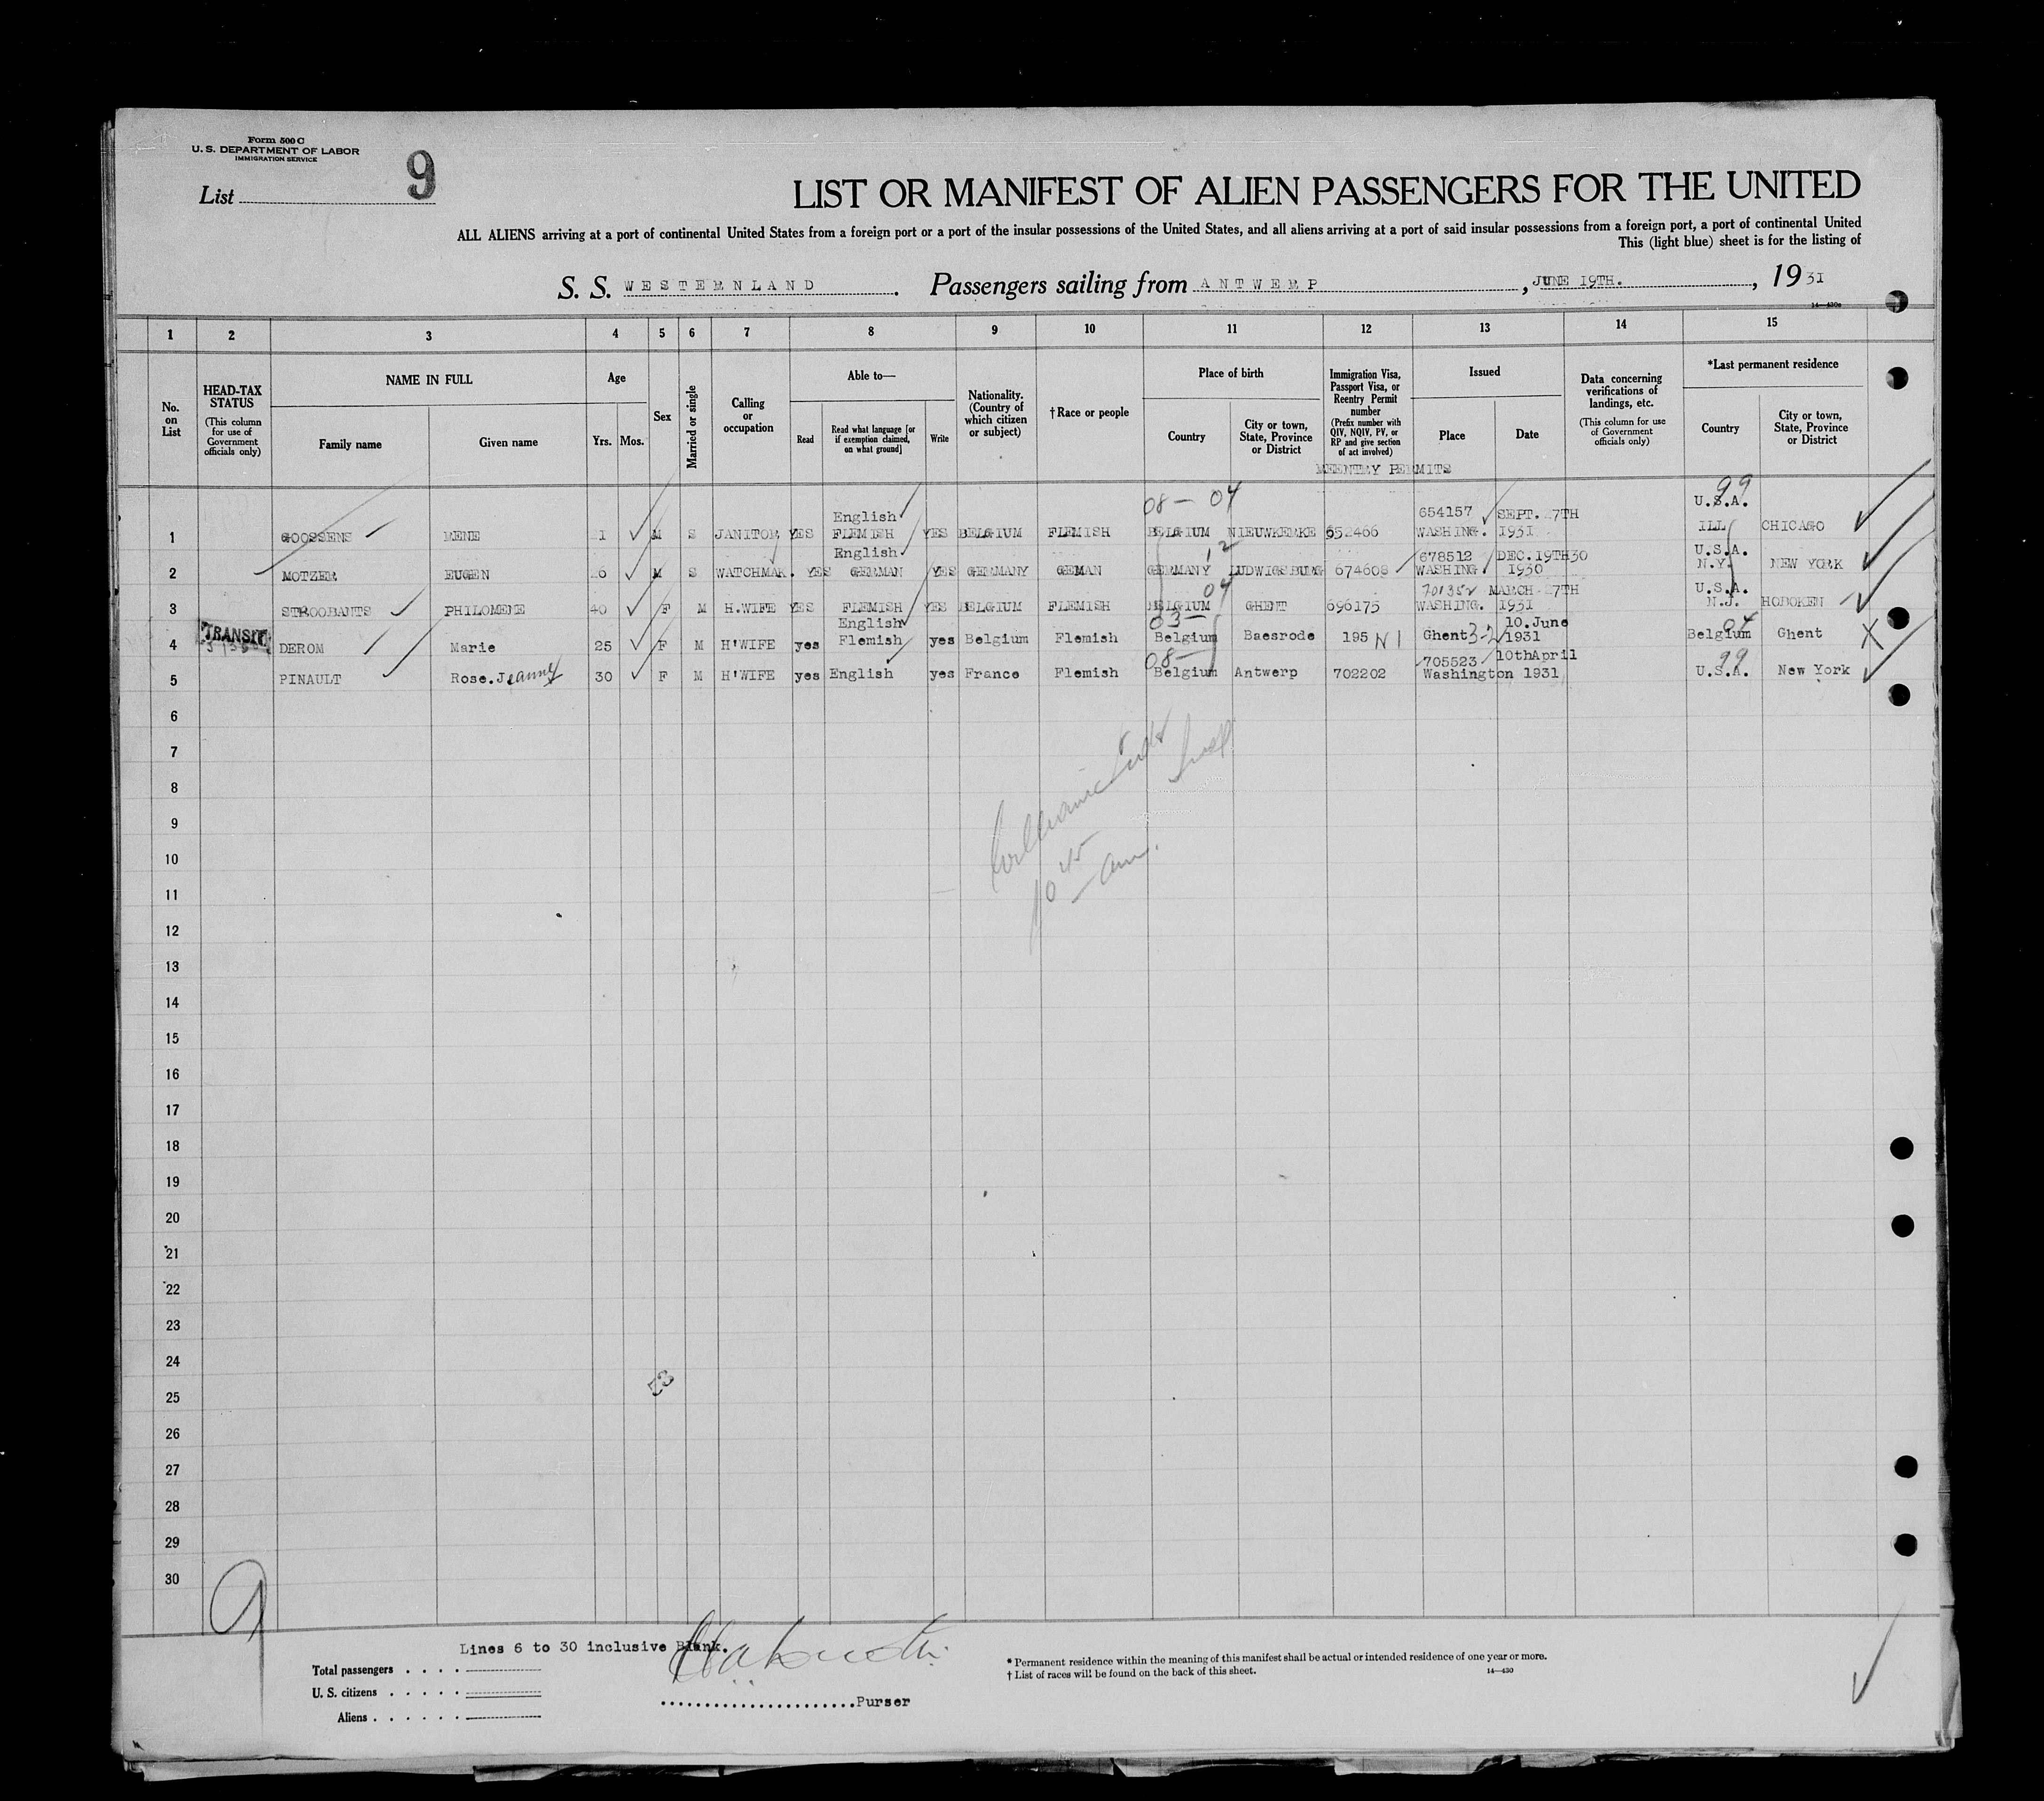 Form 500 C
U. S. DEPARTMENT OF LABOR
IMMIGRATION SERVICE
List 9
LIST OR MANIFEST OF ALIEN PASSENGERS FOR THE UNITED
ALL ALIENS arriving at a port of continental United States from a foreign port or a port of the insular possessions of the United States, and all aliens arriving at a port of said insular possessions from a foreign port, a port of continental United
This (light blue) sheet is for the listing of
S. S. WESTERNLAND. Passengers sailing from ANTWERP, JUNE 19TH., 1931
14—430c
1 2 3 4 5 6 7 8 9 10 11 12 13 14 15
No. on List
HEAD-TAX STATUS (This column for use of Government officials only)
NAME IN FULL
Family name
Given name
Age
Yrs. Mos.
Sex
Married or single
Calling or occupation
Able to—
Read
Read what language [or if exemption claimed, on what ground]
Write
Nationality. (Country of which citizen or subject)
† Race or people
Place of birth
Country
City or town, State, Province or District
Immigration Visa, Passport Visa, or Reentry Permit number (Prefix number with QIV, NQIV, PV, or RP and give section of act involved)
REENTRY PERMITS
Issued
Place
Date
Data concerning verifications of landings, etc. (This column for use of Government officials only)
*Last permanent residence
Country
City or town, State, Province or District
08 — 04 99
English 654157 SEPT. 27TH U.S.A.
1 GOOSSENS RENE M S JANITOR YES FLEMISH YES BELGIUM FLEMISH BELGIUM NIEUWKERKE 652466 WASHING. 1931 ILL CHICAGO
English 12 678512 DEC. 19TH30 U.S.A.
2 MOTZER EUGEN 26 M S WATCHMAK. YES GERMAN YES GERMANY GEMAN GERMANY LUDWIGSBURG 674608 WASHING. 1930 N.Y. NEW YORK
04 701352 MARCH 27TH U.S.A.
3 STROOBANTS PHILOMENE 40 F M H.WIFE YES FLEMISH YES BELGIUM FLEMISH BELGIUM GHENT 696175 WASHING. 1931 N.J. HOBOKEN
TRANSIT English 03 — 10.June 04
4 DEROM Marie 25 F M H'WIFE yes Flemish yes Belgium Flemish Belgium Baesrode 195 N I Ghent 3-2 1931 Belgium Ghent X
08 — 705523 10thApril 99
5 PINAULT Rose.Jeanny 30 F M H'WIFE yes English yes France Flemish Belgium Antwerp 702202 Washington 1931 U.S.A. New York
6
7
8
9
10
10 45 am.
11
12
13
14
15
16
17
18
19
20
21
22
23
24
25
26
27
28
29
30
9
Lines 6 to 30 inclusive Blank.
Total passengers . . . .
U. S. citizens . . . . .
Aliens . . . . . .
Purser
* Permanent residence within the meaning of this manifest shall be actual or intended residence of one year or more.
† List of races will be found on the back of this sheet.
14—430